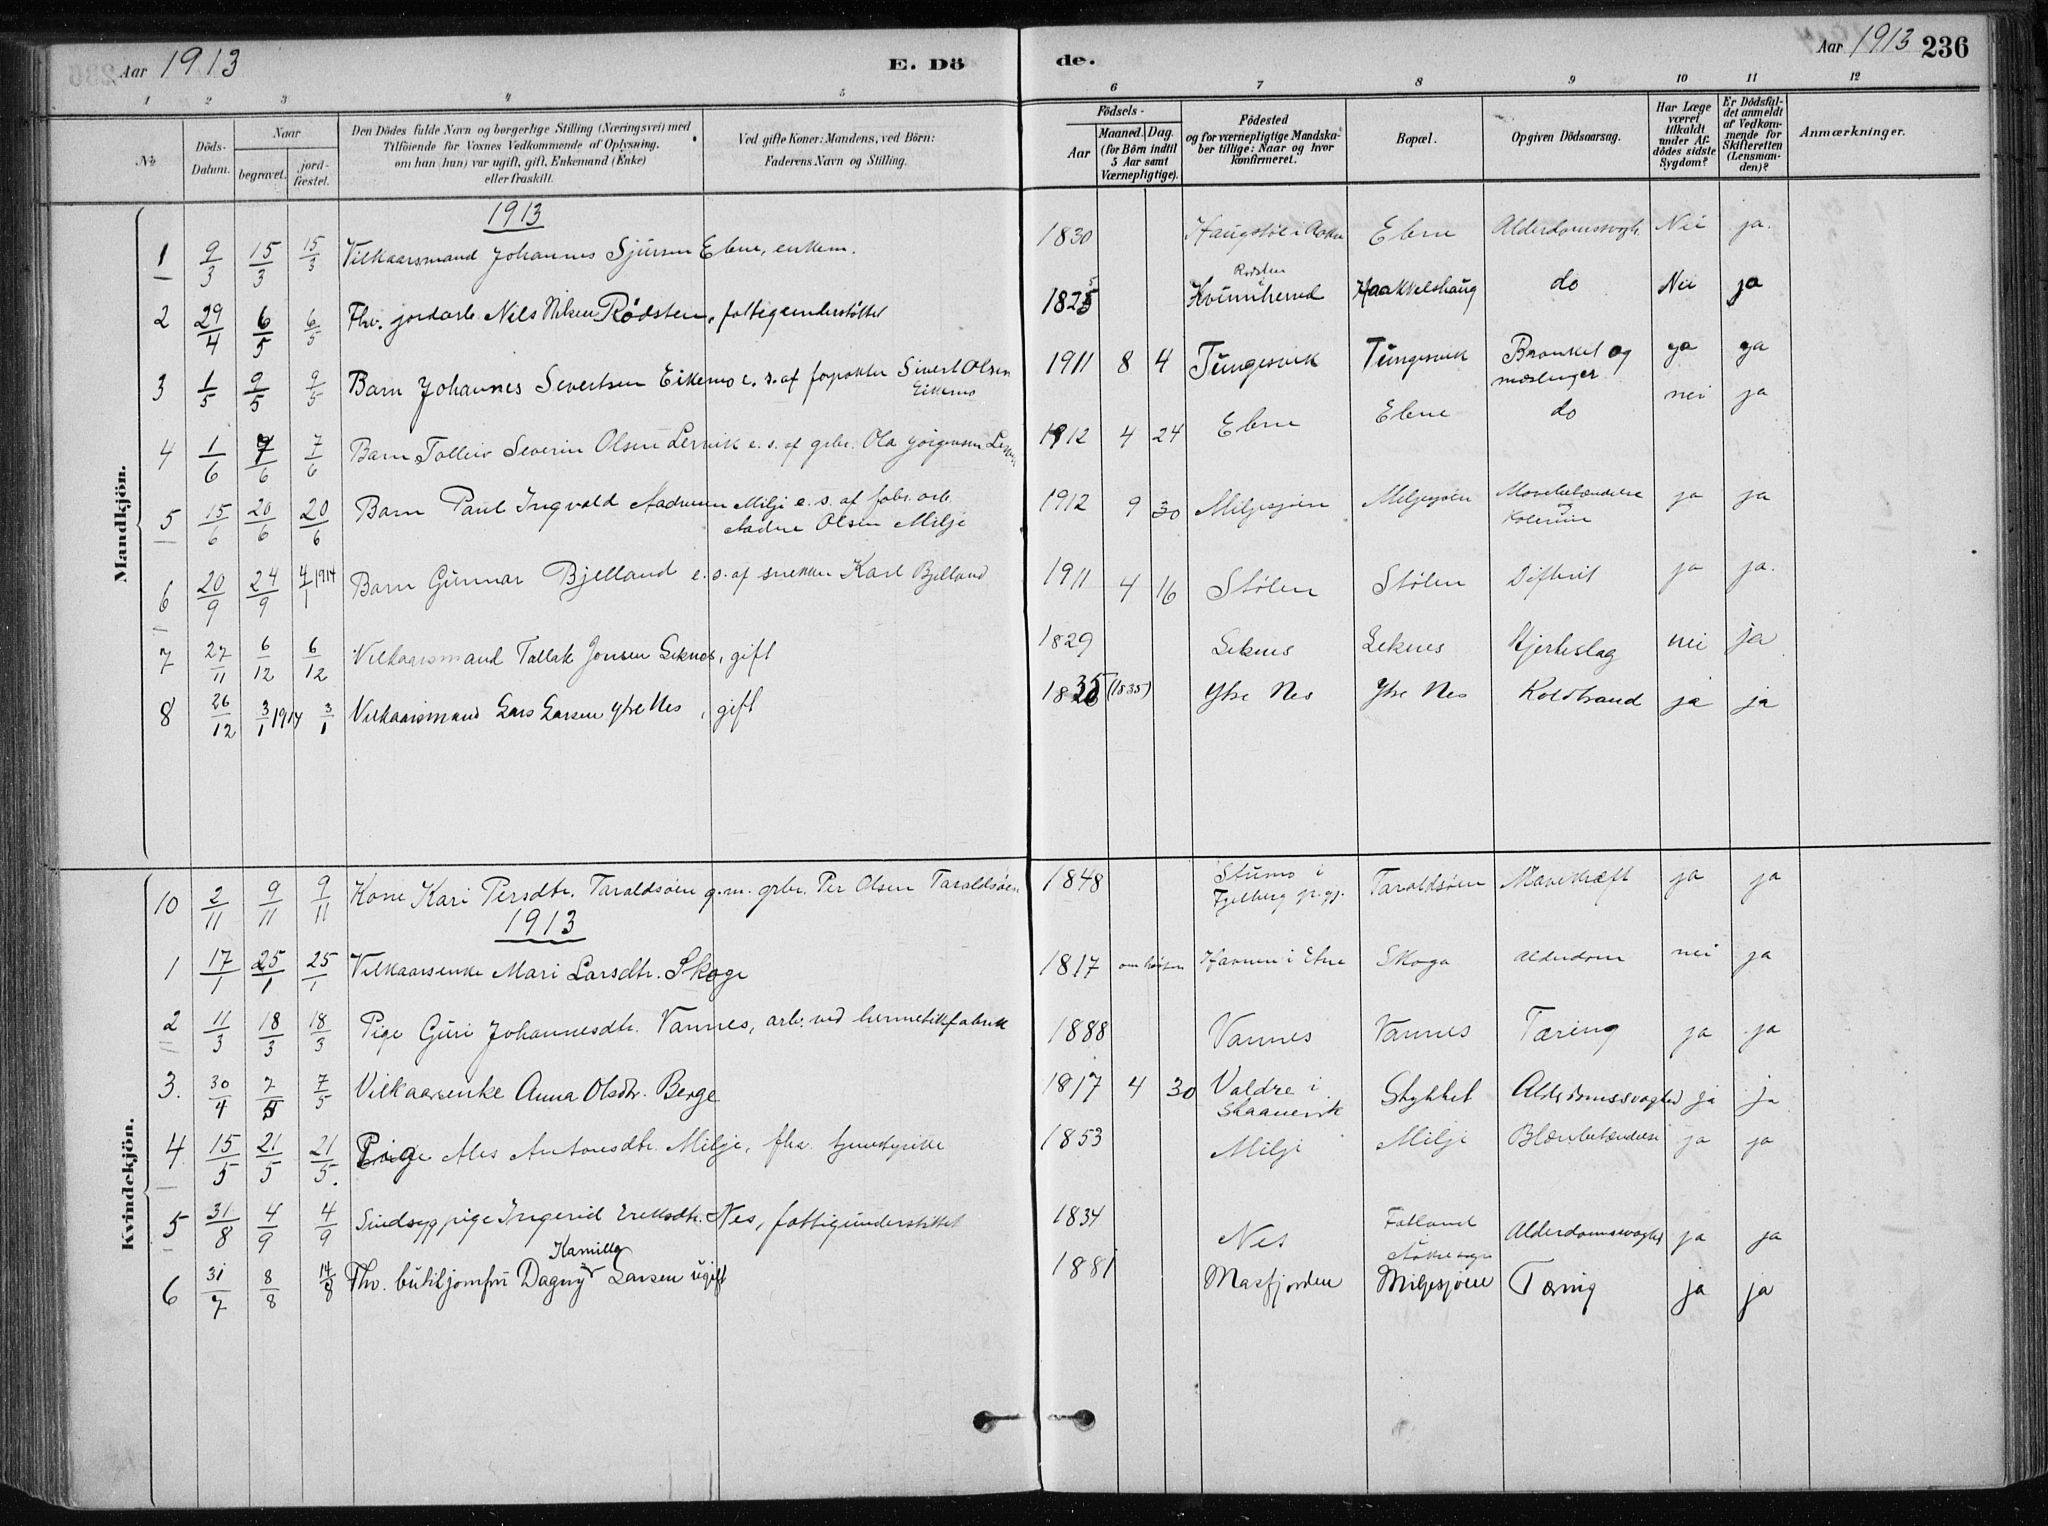 Aar 1913 E. Dö de. Aar 1913 236
1 2 3 4 5 6 7 8 9 10 11 12
No Döds-Datum. Naar begravet. jord-fæstet.
Den Dödes fulde Navn og borgerlige Stilling (Næringsvei) med
Tilföiende for Voxnes Vedkommende af Oplysning,
om han (hun) var ugift, gift, Enkemand (Enke)
eller fraskilt.
Ved gifte Koner: Mandens, ved Börn:
Faderens Navn og Stilling.
Födsels-
Aar Maaned. Dag.
(for Börn indtil
5 Aar samt
Værnepligtige).
Födested
og for værnepligtige Mandska-
ber tillige: Naar og hvor
konfirmeret.
Bopæl.
Opgiven Dödsaarsag.
Har Læge
været
tilkaldt
under Af-
dödes sidste
Sygdom?
Er Dödsfal-
det anmeldt
af Vedkom-
mende for
Skifteretten
(Lensman-
den)?
Anmærkninger.
Mandkjön.
1913
1 9/3 15/3 15/3 Vilkaarsmand Johannes Sjursen Ebne, enkem. 1830 Haugstøl i Ebne Alderdomssvagh. Nei ja.
2 29/4 6/5 6/5 Fhv. jordarb. Nils Nilsen Rødsten, fattigunderstøttet 1825 5 Rødsten Kvinnherred Haakkelshaug do Nei ja
3 1/5 9/5 9/5 Barn Johannes Severtsen Eikemo e. s. af Sivert Olsen
Eikemo 1911 8 4 Tungesvik Tungesvik Bronkit og
mæslinger ja ja
4 1/6 7/6 7/6 Barn Tolleiv Severin Olsen Lervik e. s. af grbr. Ola Jørgensen 1912 4 24 Ebne Ebne do nei ja
5 15/6 20/6 20/6 Barn Paul Ingvald Aadnesen Milje e. s. af fabr. arb.
Aadne Olsen Milje 1912 9 30 Miljesjøen Miljesjøen Mavebetændelse
ja ja
6 20/9 24/9 4/1 1914 Barn Gunnar Bjelland e. s. af snekker Karl Bjelland 1911 4 16 Stølen Stølen Difterit ja ja.
7 27/11 6/12 6/12 Vilkaarsmand Tallak Jonsen Leknes, gift 1829 Leknes Leknes Hjerteslag nei ja
8 26/12 3/1 1914 3/1 Vilkaarsmand Lars Larsen Ytre Nes, gift 1835 (1835) Ytre Nes Ytre Nes Koldbrand ja ja
Kvindekjön.
10 2/11 9/11 9/11 Kone Kari Persdtr. Taraldsøen g. m. grbr. Per Olsen Taraldsøen 1848 Stumo i
Fjelberg pr.gj. Taraldsøen Mavekræft ja ja
1913
1 17/1 25/1 25/1 Vilkaarsenke Mari Larsdtr. Skoge 1817 om høsten Havnen i Etne Skoga Alderdom nei ja
2 11/3 18/3 18/3 Pige Guri Johannesdtr. Vannes, arb. ved hermetikfabrik 1888 Vannes Vannes Tæring ja ja
3. 30/4 7/5 7/5 Vilkaarsenke Anna Olsdtr. Berge 1817 4 30 Valdre i
Skaanevik Stykket Alderdomssvaghed ja ja
4 15/5 21/5 21/5. Pige Ales Antonsdtr. Milje, fhv. tjenestepike 1853 Milje Milje ja ja
5 31/8 4/9 4/9 Sindsyg pige Ingerid Eriksdtr. Nes, fattigunderstøttet 1834 Nes Alderdomssvaghed ja ja
6 31/7 8/8 14/8 Fhv. butikjomfru Dagny Kamilla Larsen ugift 1881 Masfjorden Miljesjøen Tæring ja ja